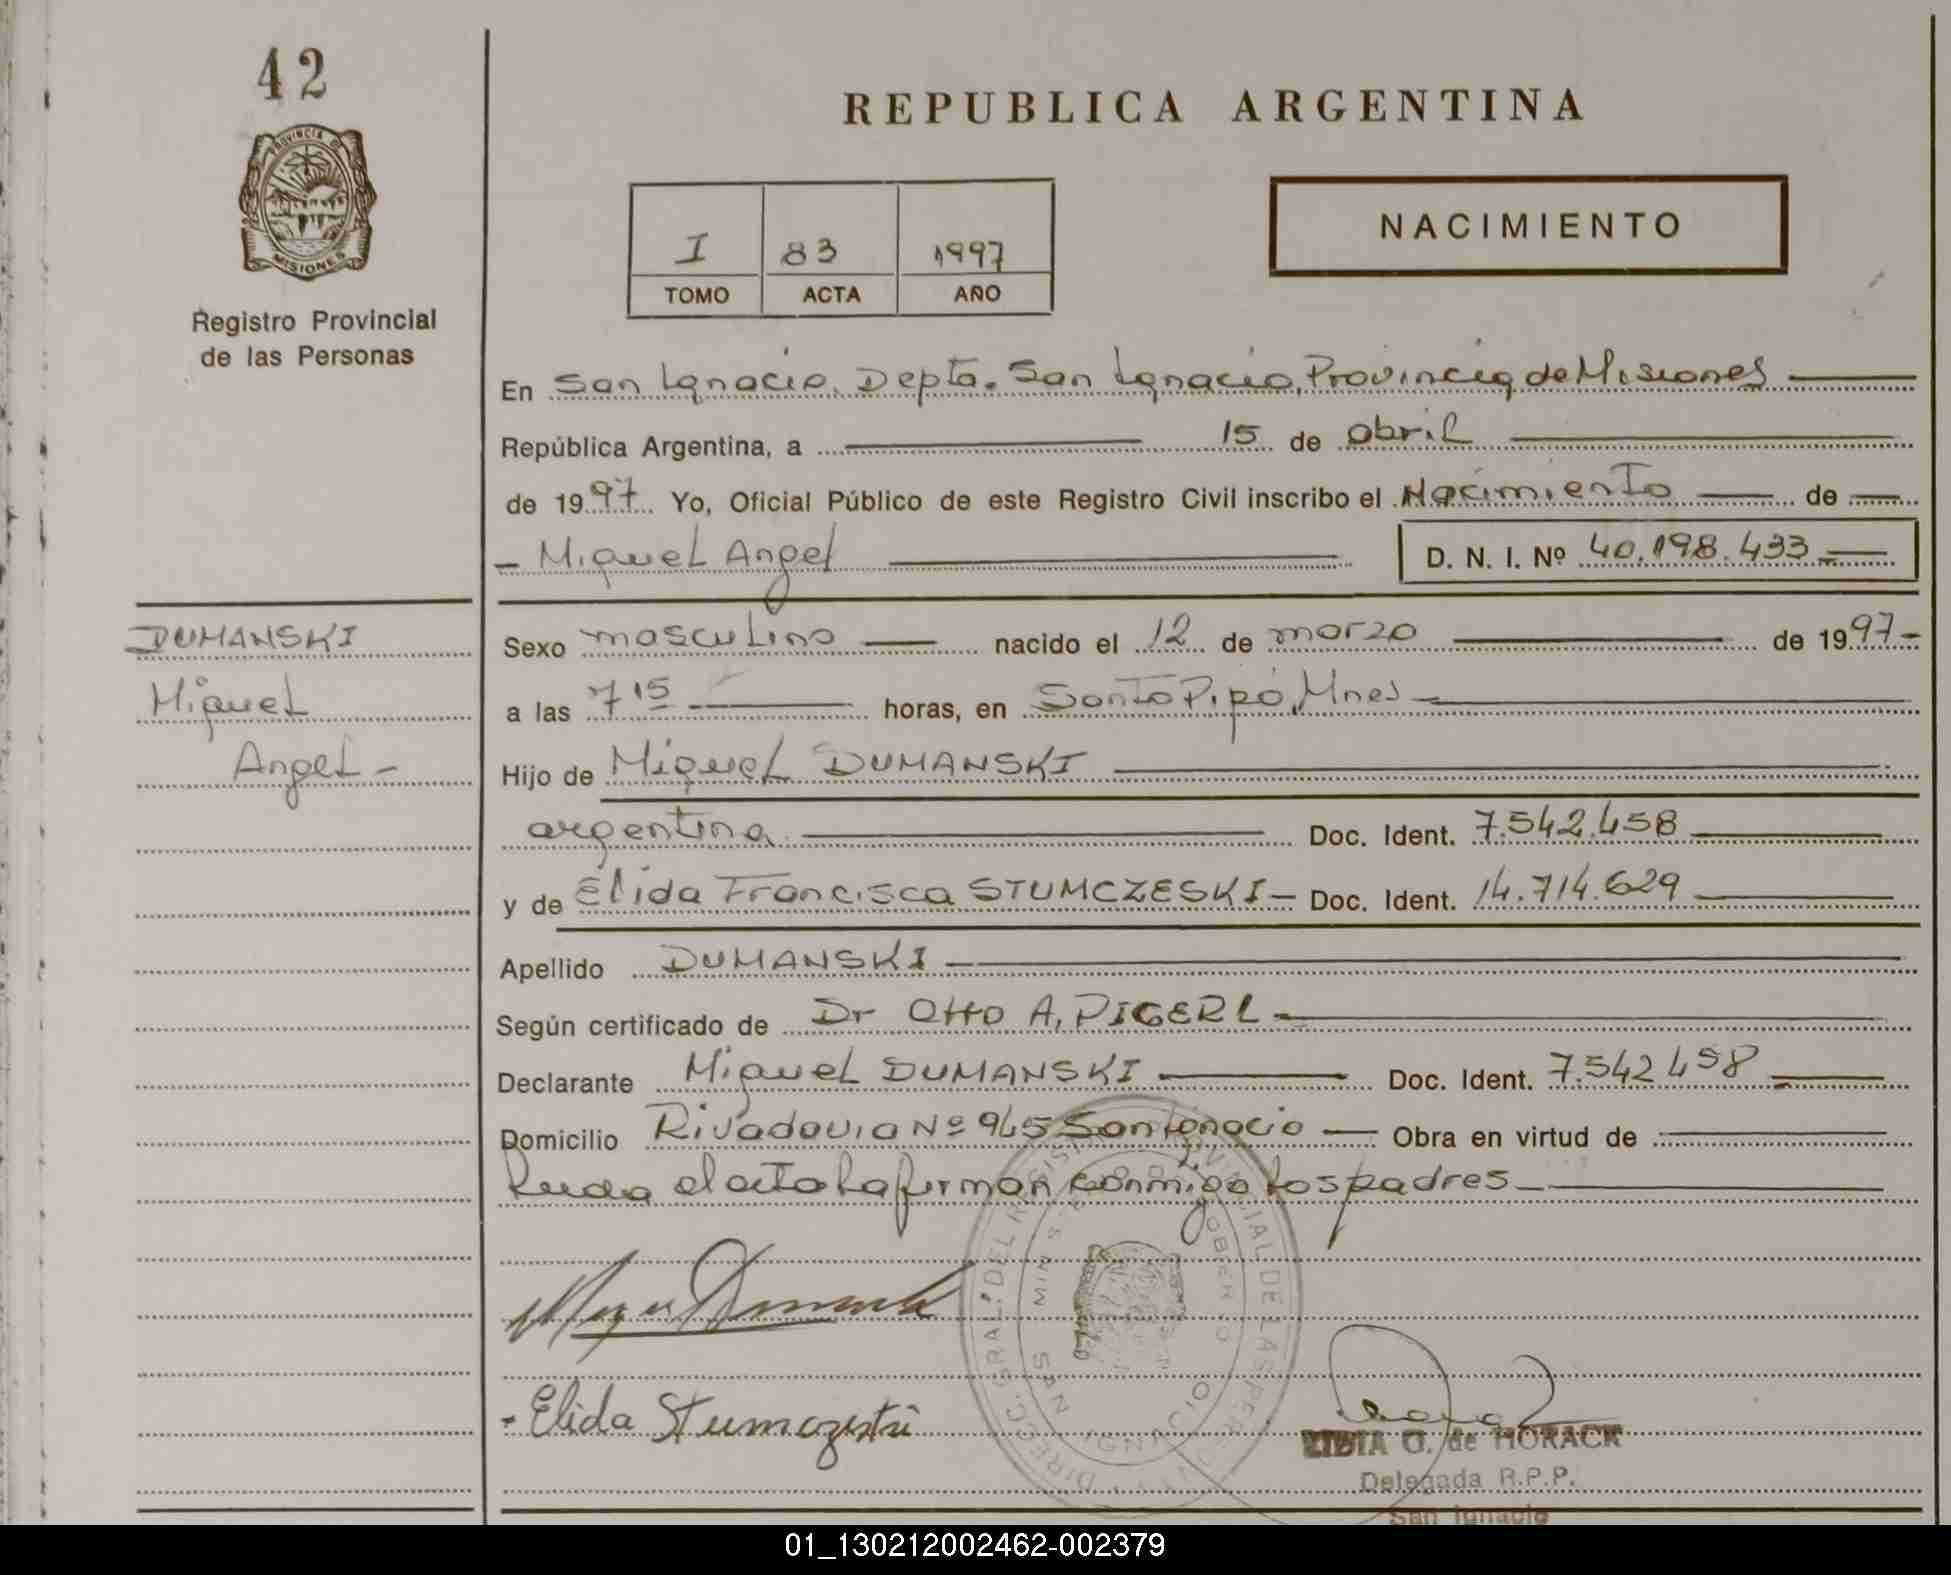 42
REPUBLICA ARGENTINA
PROVINCIA DE
MISIONES
Registro Provincial
de las Personas
I 83 1997
TOMO ACTA AÑO
NACIMIENTO
En San Ignacio, Depto. San Ignacio, Provincia de Misiones
República Argentina, a 15 de abril
de 1997 Yo, Oficial Público de este Registro Civil inscribo el Nacimiento de
- Miguel Angel D. N. I. Nº 40.198.433
DUMANSKI
Miguel
Angel -
Sexo masculino nacido el 12 de marzo de 1997-
a las 7 15 horas, en Santo Pipó, Mnes
Hijo de Miguel DUMANSKI
argentina Doc. Ident. 7.542.458
y de Elida Francisca STUMCZESKI - Doc. Ident. 14.714.629
Apellido DUMANSKI
Según certificado de Dr Otto A. PIGERL
Declarante Miguel DUMANSKI Doc. Ident. 7.542 458
Domicilio Rivadavia Nº 945 San Ignacio Obra en virtud de
Leida el acta la firman conmigo los padres
- Elida Stumczeski
DIRECC. GRAL. DEL REGISTRO PROVINCIAL DE LAS PERSONAS
MINIS. GOBIERNO
SAN IGNACIO
LIDIA G. de HORACK
Delegada R.P.P.
San Ignacio
01_130212002462-002379